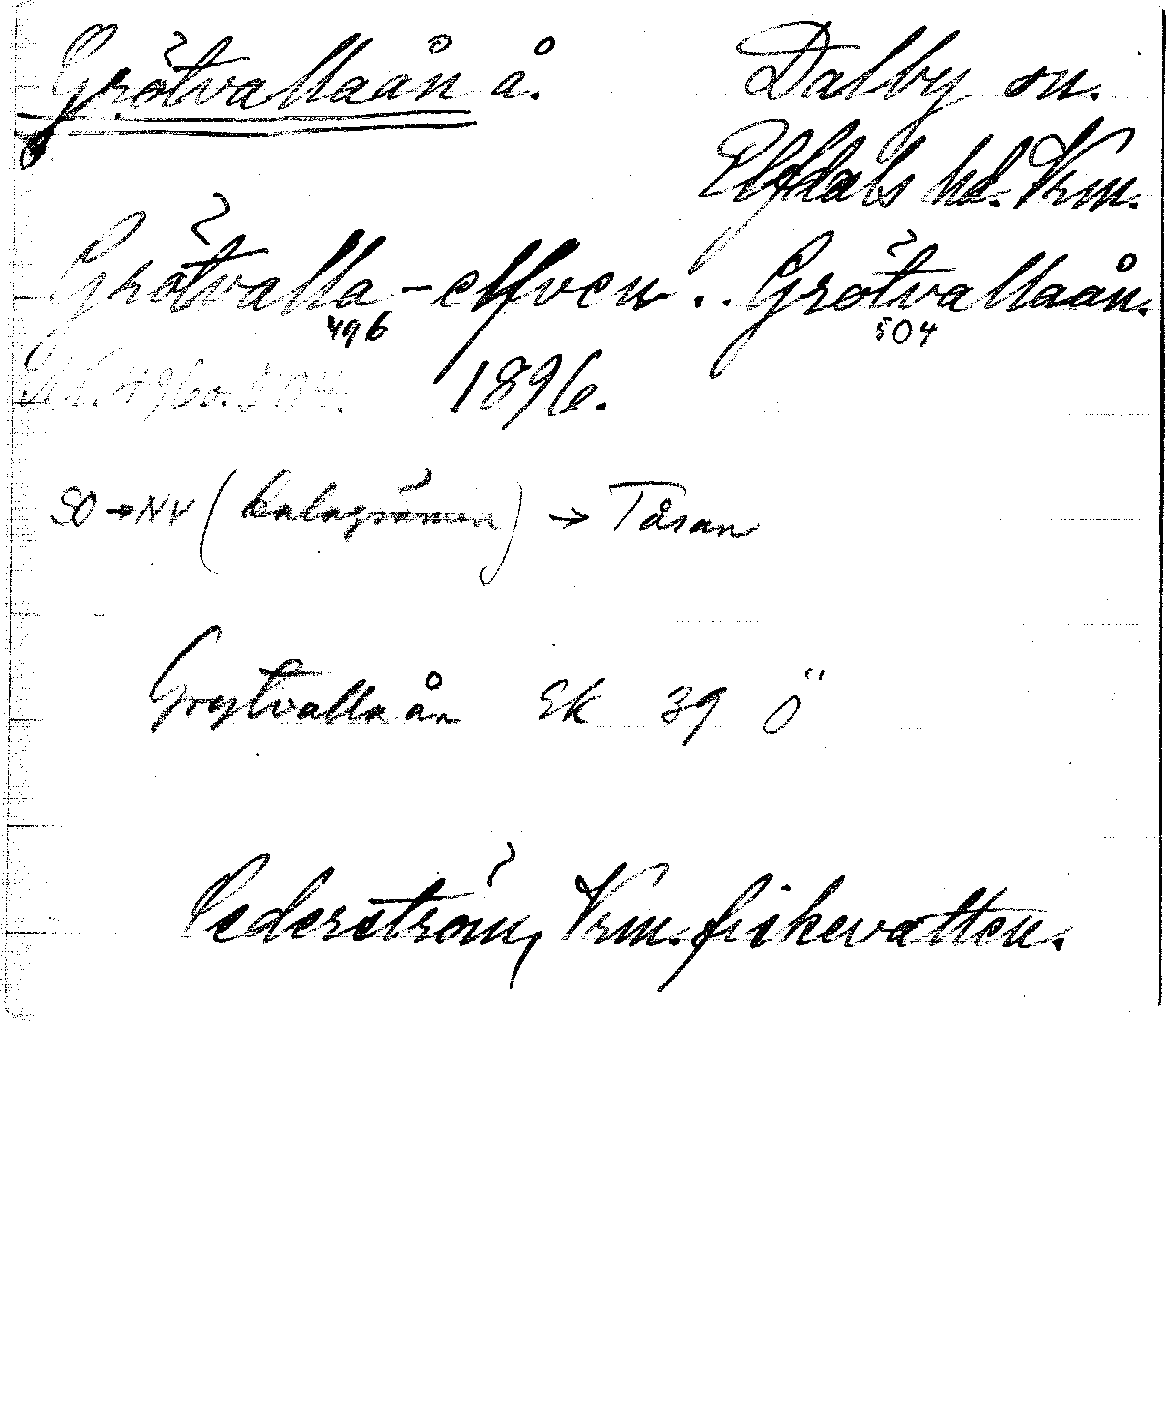 Grötvallaån å. Dalby sn.
Elfdals hd. Vrm.
Grötvalla-elfven .. Grötvallaån.
496 504
1896.
SO→NV (Dalagränsen) → Tåsan
Grytvallaån Ek 39 Ö
Cederström, Vrm. fiskevatten.